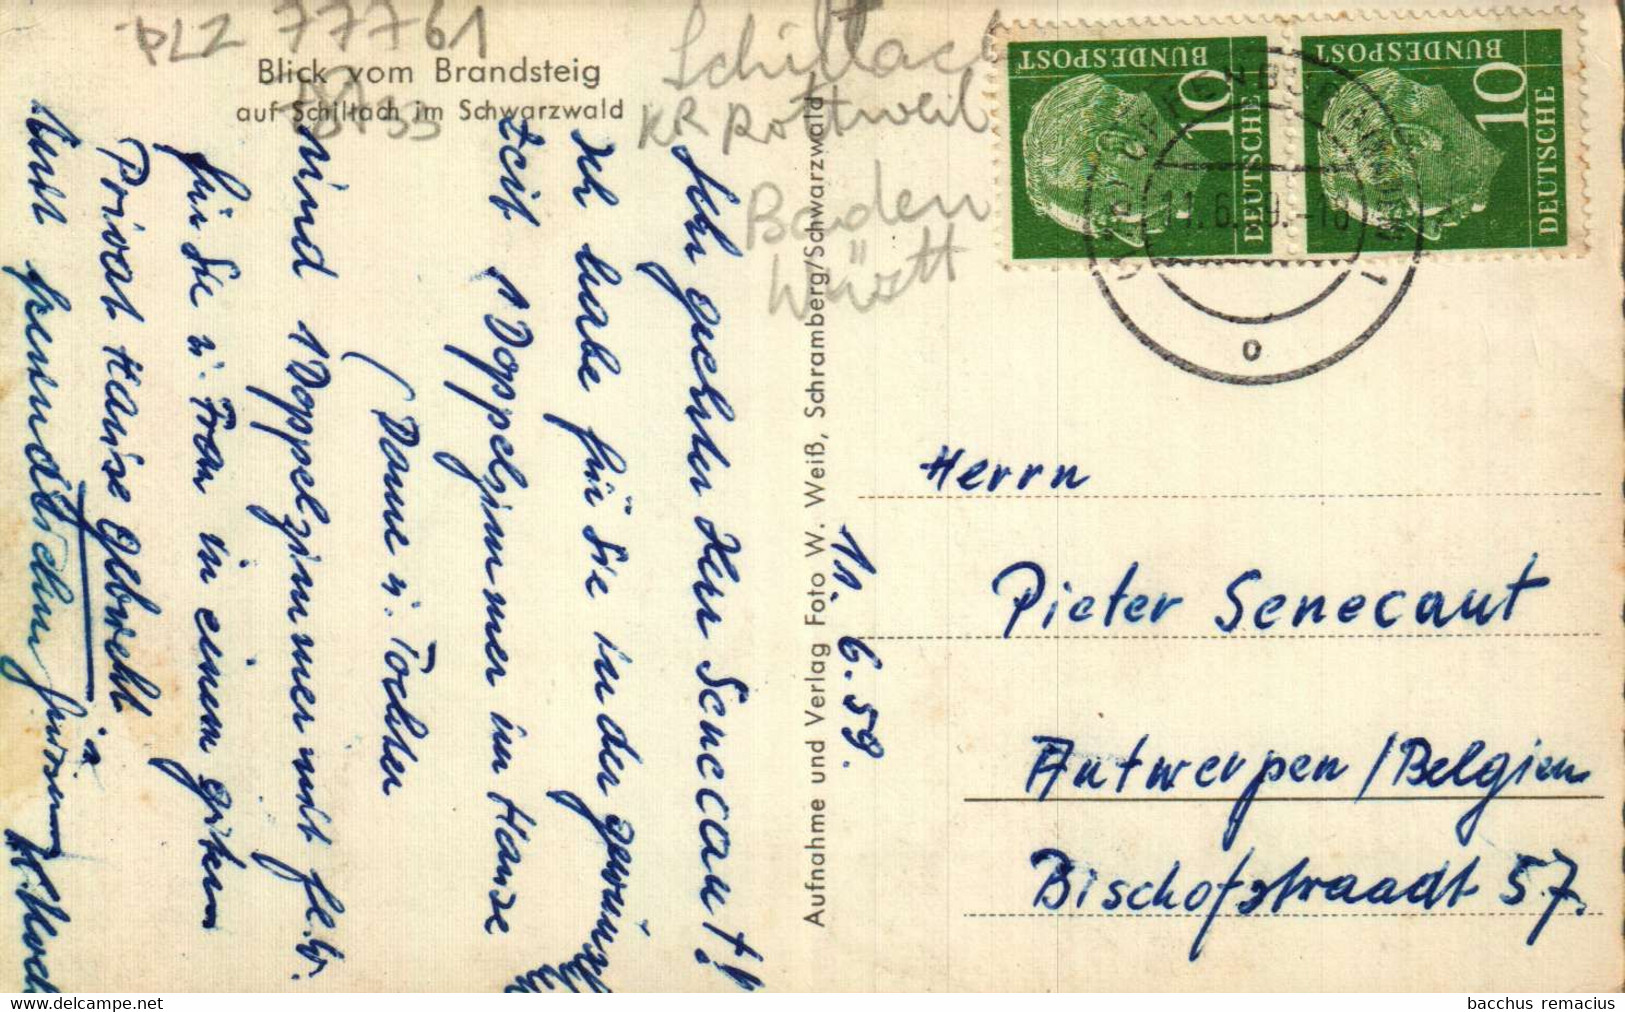 PLZ 77761
Blick vom Brandsteig
auf Schiltach im Schwarzwald
Schiltach
KR Rottweil
Baden
Württ
Sehr geehrter Herr Senecaut!
Ich habe für Sie in der gewünscht
Zeit 1 Doppelzimmer im Hause
(Dame u. Tochter
sind 1 Doppelzimmer mit fl. W.
für Sie u. Frau in einem guten
Privat Hause gebucht
Mit freundlichen Grüssen
11.6.59.
Aufnahme und Verlag Foto W. Weiß, Schramberg/Schwarzwald
10
DEUTSCHE
BUNDESPOST
10
DEUTSCHE
BUNDESPOST
Herrn
Pieter Senecaut
Antwerpen/Belgien
Bischofstraadt 57.
bacchus remacius
delcampe.net